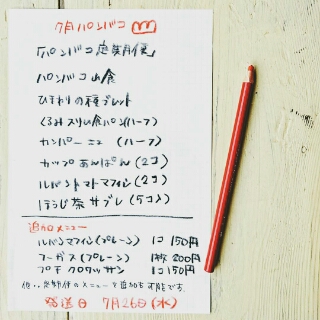 7月パンバコ
「パンバコ定期便」
パンバコ山食
ひまわりの種ブレット
くるみスリム食パン(ハーフ)
カンパーニュ (ハーフ)
カップあんぱん(2コ)
ルバントマトマフィン(2コ)
ほうじ茶サブレ(5コ入)
追加メニュー
ルバンマフィン(プレーン) 1コ 150円
フーガス(プレーン) 1枚 200円
プチクロワッサン 1コ 150円
他、定期便のメニューを追加も可能です。
発送日 7月26日(水)